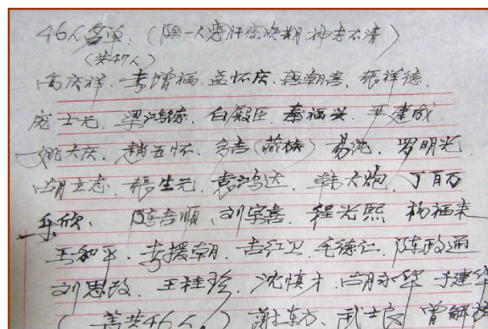 46人名单:(除一人患肝癌晚期,神志不清)
(共47人)
高庆祥、李清福、孟怀庆、 朝喜、张祥德
庞士元、梁鸿 、白殿臣、秦福兴、尹建成
姚大庆、赵五怀、 吉( )、易 、罗明光
胡立志、杨生元、袁鸿达、韩大 、丁百万
乐欣、陈吉顺、刘宗喜、程光熙、杨福来
王和平、李援朝、吉江卫、毛德仁、陈政通
刘思政、王桂珍、沈慎才、胡永华、于建华
(共46人。)谢东方、武士良、曾解放